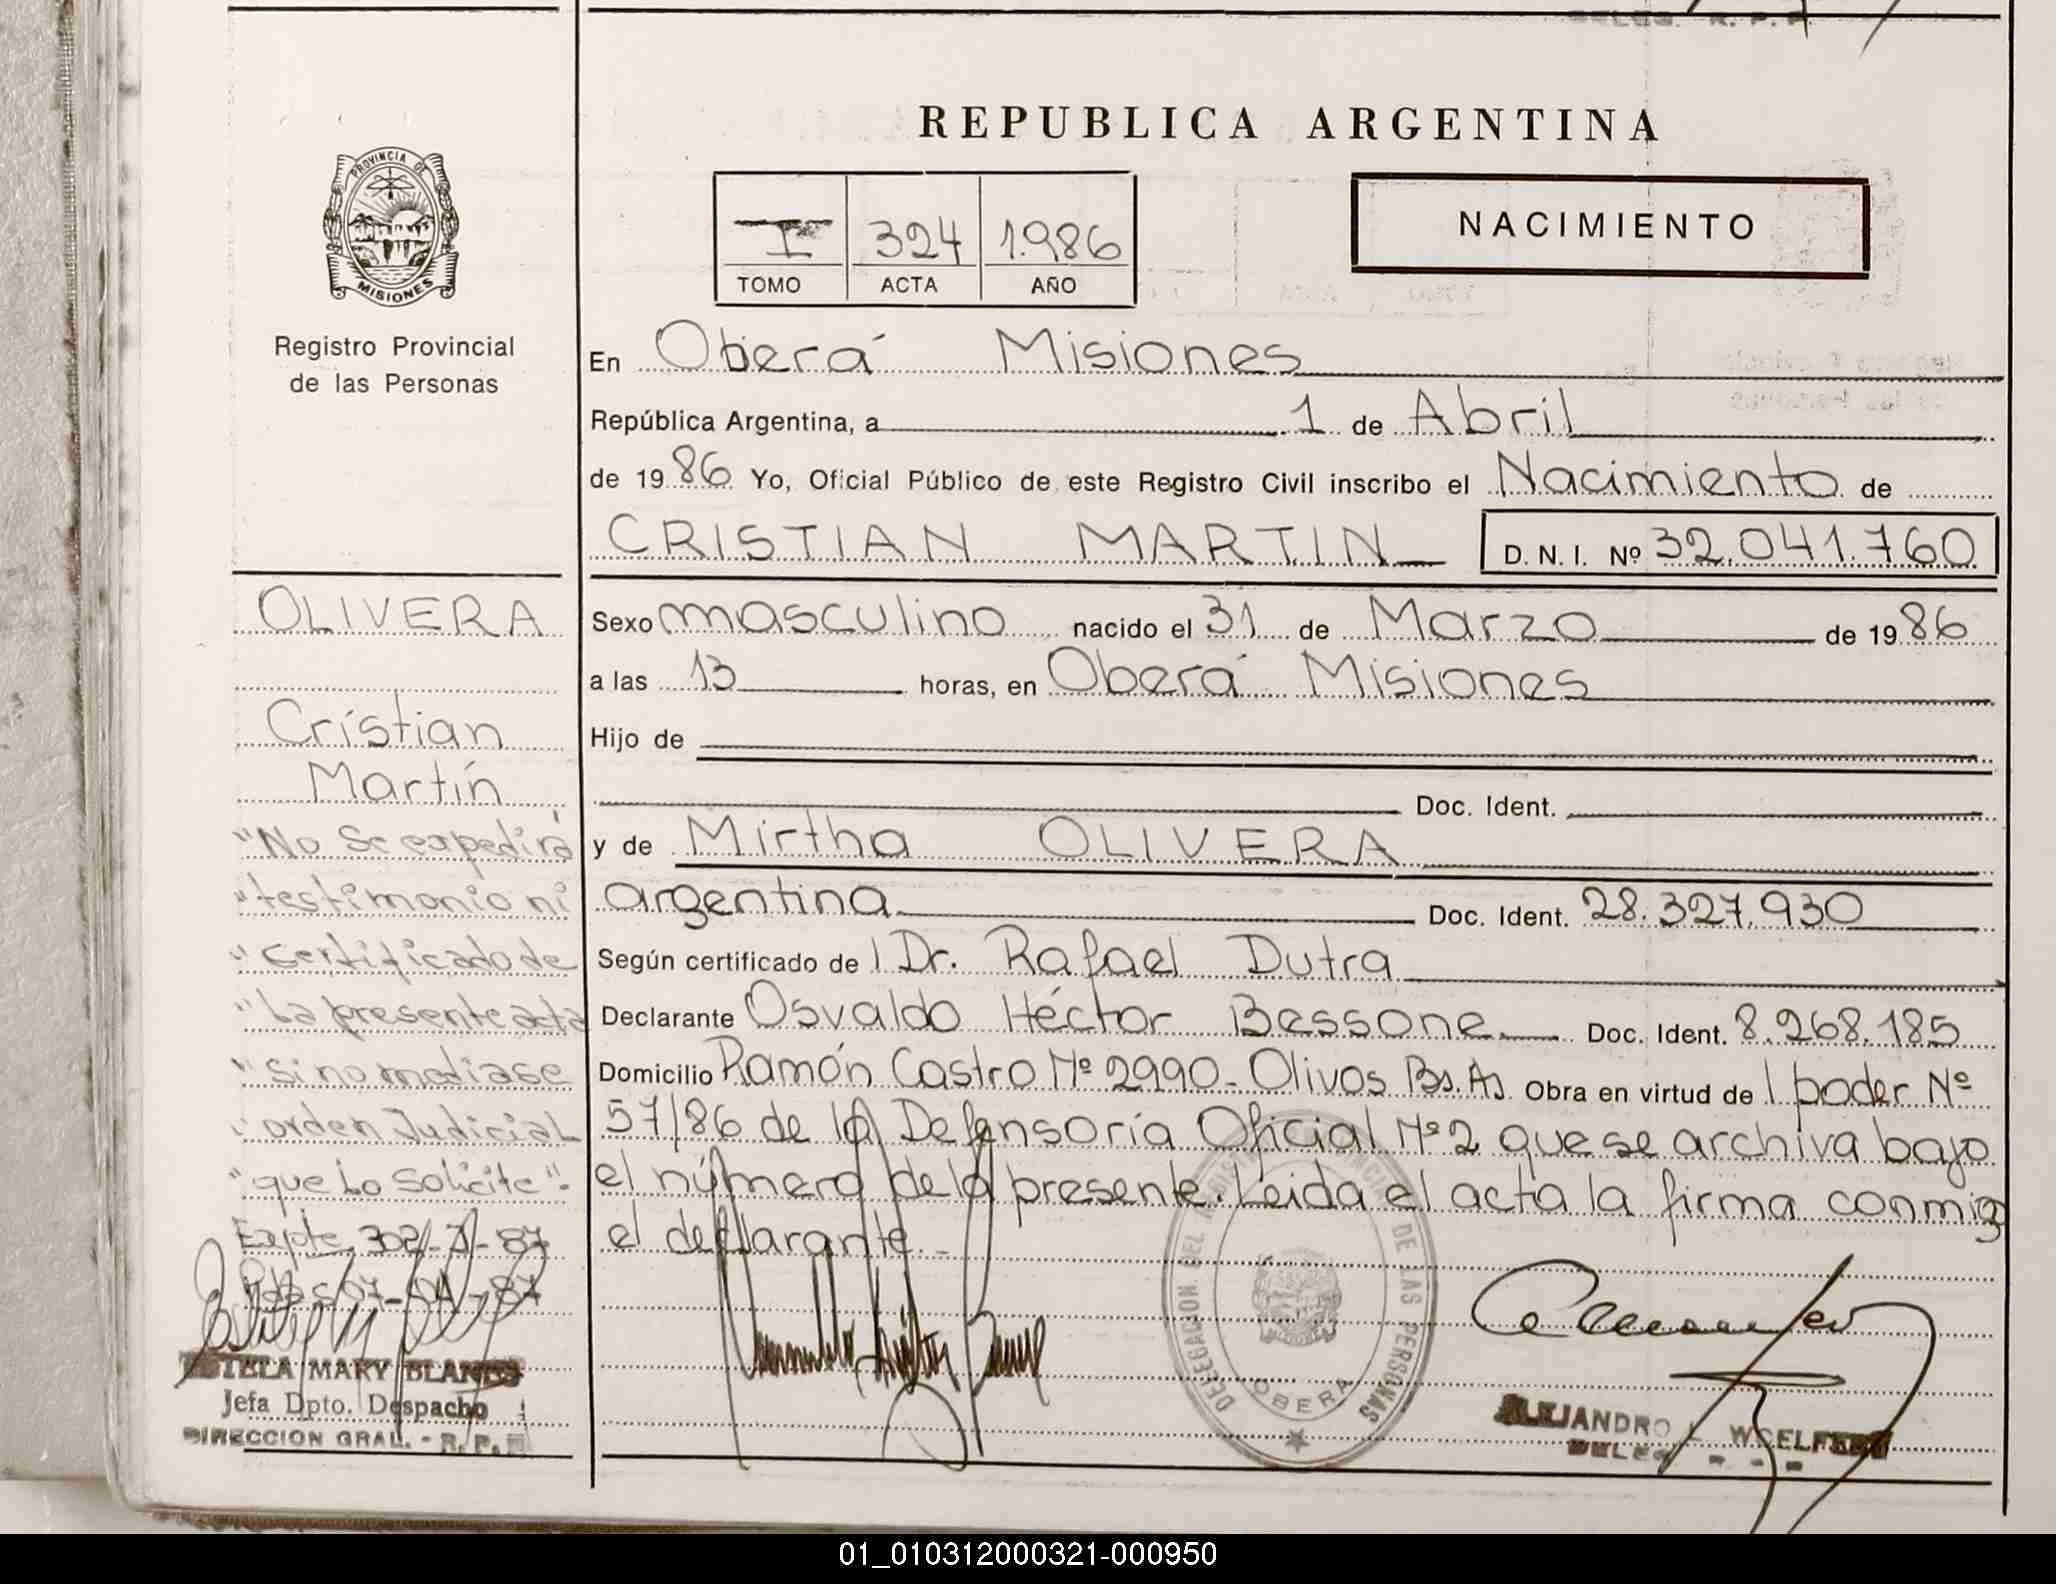 REPUBLICA ARGENTINA
PROVINCIA DE
MISIONES
Registro Provincial
de las Personas
I 324 1.986
TOMO ACTA AÑO
NACIMIENTO
En Oberá Misiones
República Argentina, a 1 de Abril
de 19 86 Yo, Oficial Público de este Registro Civil inscribo el Nacimiento de
CRISTIAN MARTIN D. N. I. Nº 32.041.760
Sexo masculino nacido el 31 de Marzo de 19 86
a las 13 horas, en Oberá Misiones
Hijo de
Doc. Ident.
y de Mirtha OLIVERA
argentina Doc. Ident. 28.327.930
Según certificado de 1 Dr. Rafael Dutra
Declarante Osvaldo Héctor Bessone Doc. Ident. 8.268.185
Domicilio Ramón Castro Nº 2990- Olivos Bs.As. Obra en virtud de 1 poder Nº
57/86 de la Defensoría Oficial Nº2 que se archiva bajo
el número de la presente. Leida el acta la firma conmigo
el declarante.-
OLIVERA
Cristian
Martín
"No Se expedirá
"testimonio ni
"certificado de
"La presente acta
"si no mediase
"orden Judicial
"que Lo solicite"-
Expte. 302
- 87
ESTELA MARY BLANCO
Jefa Dpto. Despacho
DIRECCION GRAL. - R. P. P.
DELEGACION DEL REGISTRO PROVINCIAL DE LAS PERSONAS
OBERA
ALEJANDRO L. WOELFERT
DELEG. R. P. P.
01_010312000321-000950